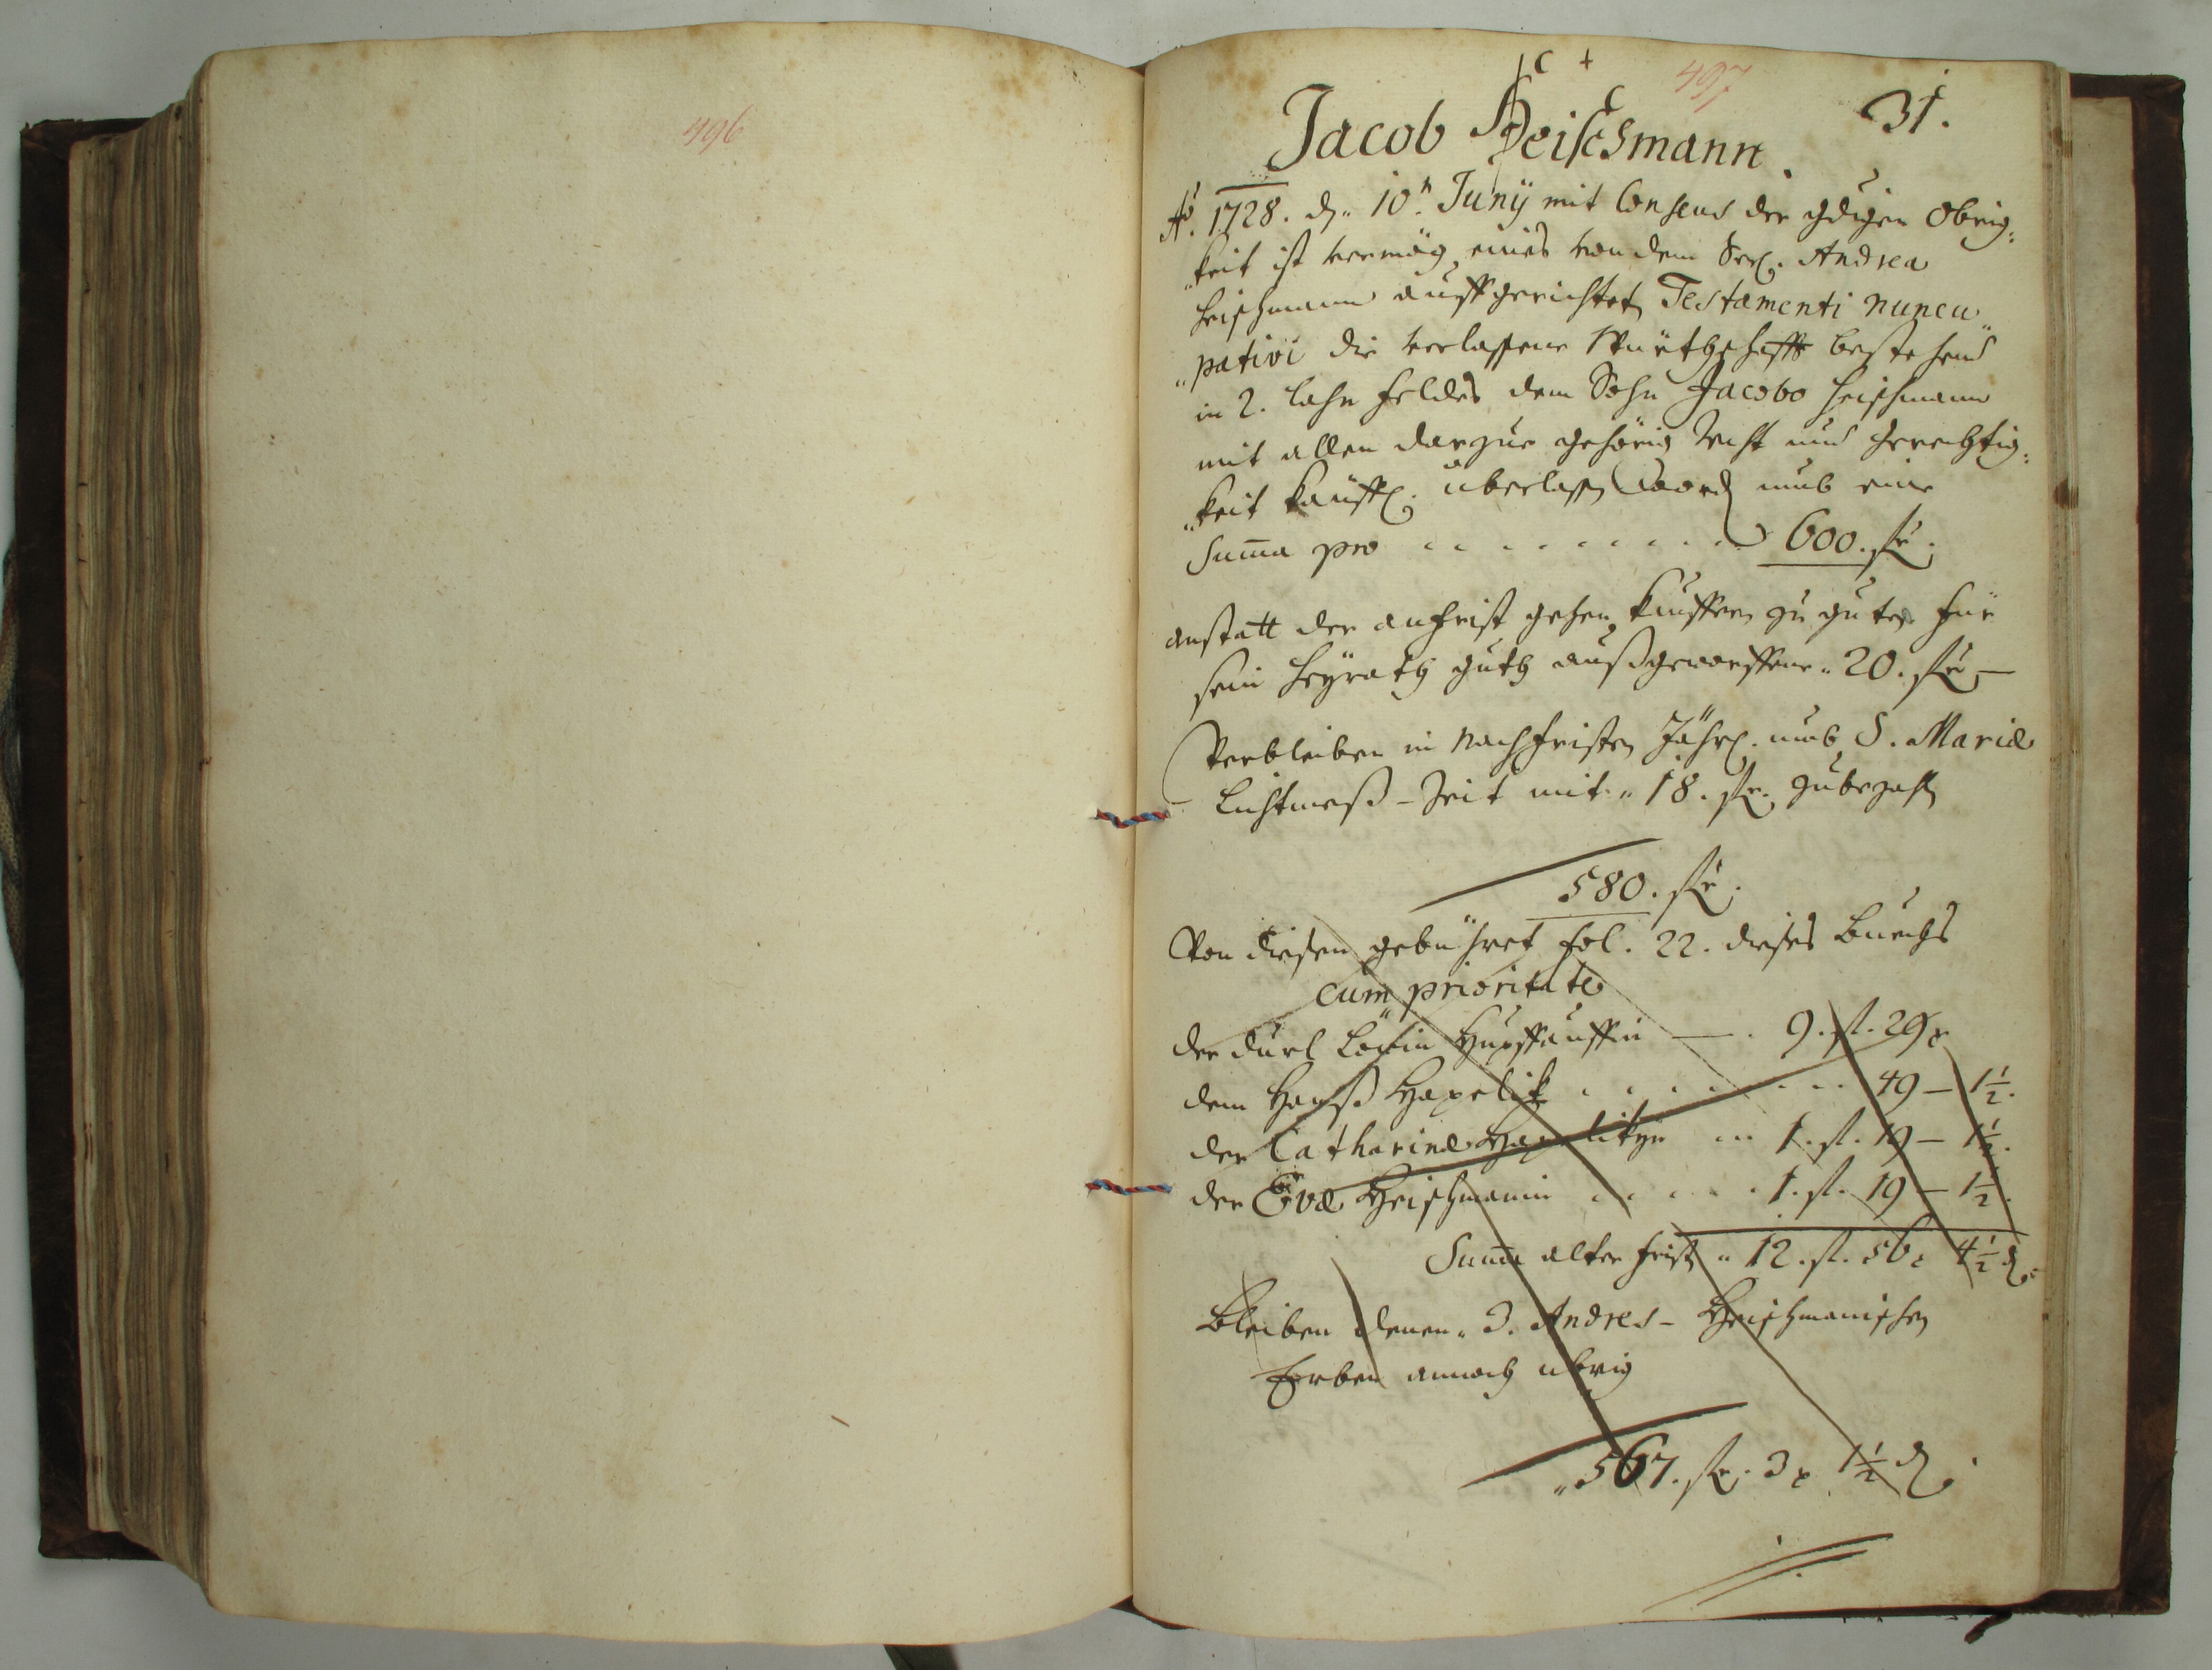 496
497
31.
Jacob Heischmann.
Aõ. 1728. dn. 10n. Junÿ mit Consens der gdigen Obrig:
keit ist vermög eines von dem Seel. Andrea
Heischmann auffgerichten Testamenti nuncu
pativi die verlassene Würthschafft bestehend
in 2. Lahn Feldes dem Sohn Jacobo Heischmann
mit allen darzue gehörig Recht und Gerechtig:
keit käuffl. überlassen word umb eine
Suma pro - - - - - - - - - 600. fl.
anstatt der anfrist gehen Kauffern zu guten für
sein Heÿrath guth außgeworffene 20. fl.
Verbleiben in Nachfristen Jährl. umb S. Mariæ
Lichtmess-Zeit mit 18. fl. zubezahlen
580. fl.
Von diesen gebühret fol. 22. dieses Buechs
cum prioritate
der 9. fl. 29 x
dem Hanß - - - - - - 49 – 1½.
der Catharinæ ... 1. fl. 19 – 1½.
der Evæ Heischmanin - - - - - 1. fl. 19 – 1½.
Suma alter frist 12. fl. 56 x 4½ d.
Bleiben denen 3. Andres-Heischmanischen
Erben annoch übrig
567. fl. 3 x 1½ d.